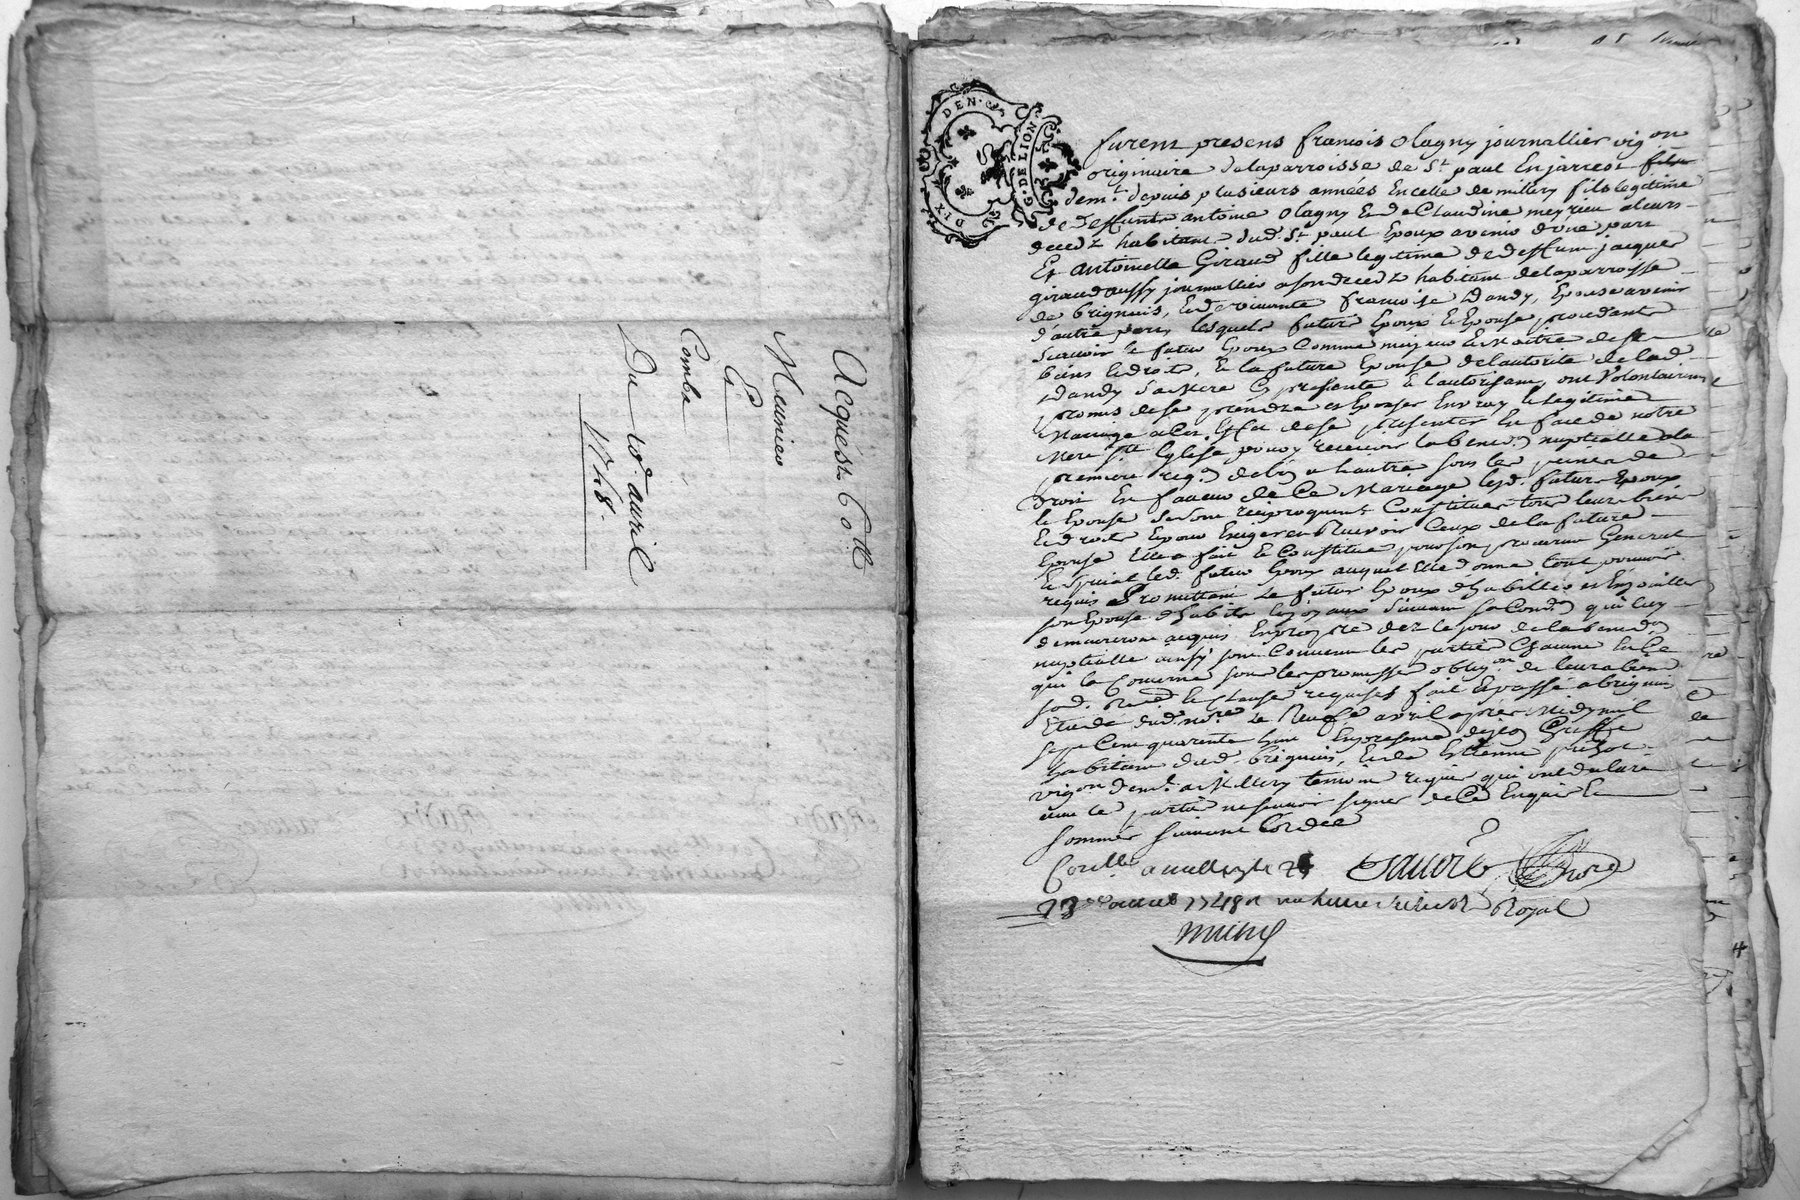 Acquest 60 ll
Meunier
Et
Combe
Du 10e avril
1748.
DIX DEN.
G. DE LION
furent presens francois Olagny journallier vigon
originaire delaparroisse de St. paul Enjarrest
demt. depuis plusieurs années Encelle de millery fils legitime
de deffunts antoine Olagny Et de Claudine meyrieu aleurs
decedz habitant dud. St. paul Epoux avenir d'une part
Et antoinette Giraud fille legitime de deffunt jacques
giraud aussy journallier asondecedz habitant delaparroisse
de brignais, Et de vivante francoise Dandy, Epouse avenir
d'autre part, lesquels futurs Epoux Et Epouse procedants
scavoir le futur Epoux Comme majeur Et Maitre de ses
biens Et droits, Et la future Epouse de lautorité de lad.
Dandy sa Mere Cy presente Et l'autorisant, ont Volontairemt
promis de se prendre et Epouser Envray Et legitime
Mariage a Cet Effet de se presenter En face de notre
Mere Ste Eglise pour y recevoir la bened.on nuptialle ala
premiere req.on de lun a lautre sous les peines de
Droit En faveur de Ce Mariage lesd. futurs Epoux
Et Epouse se sont reciproquemt Constitués tous leurs biens
Et droits Et pour Exiger et Recevoir Ceux de la future
Epouse Elle a fait Et Constitué pour son procureur General
Et special led. futur Epoux auquel Elle donne tout pouvoir
requis Promettant Le futur Epoux d'habiller et Enjoailler
son Epouse d'habits Et joyaux suivant sa Condon qui luy
demeureront acquis Enpropre dez le jour de la bened.on
nuptialle ainsy sont Convenu les parties Chacune En Ce
qui la Concerne sous les promesses obligon de leurs biens
Et Clauses requises fait Et passé a brignais
Etude dud. nore Le Neuf avril après Midy mil
sept Cent quarente huit Enpresence de
habitant dud. brignais, Et de Estienne
vigon demt. a Millery temoins requis qui ont declaré
avec les parties ne scavoir signer de Ce Enquis Et
sommés suivant Lordce
Conllé a
13 1748
Royal